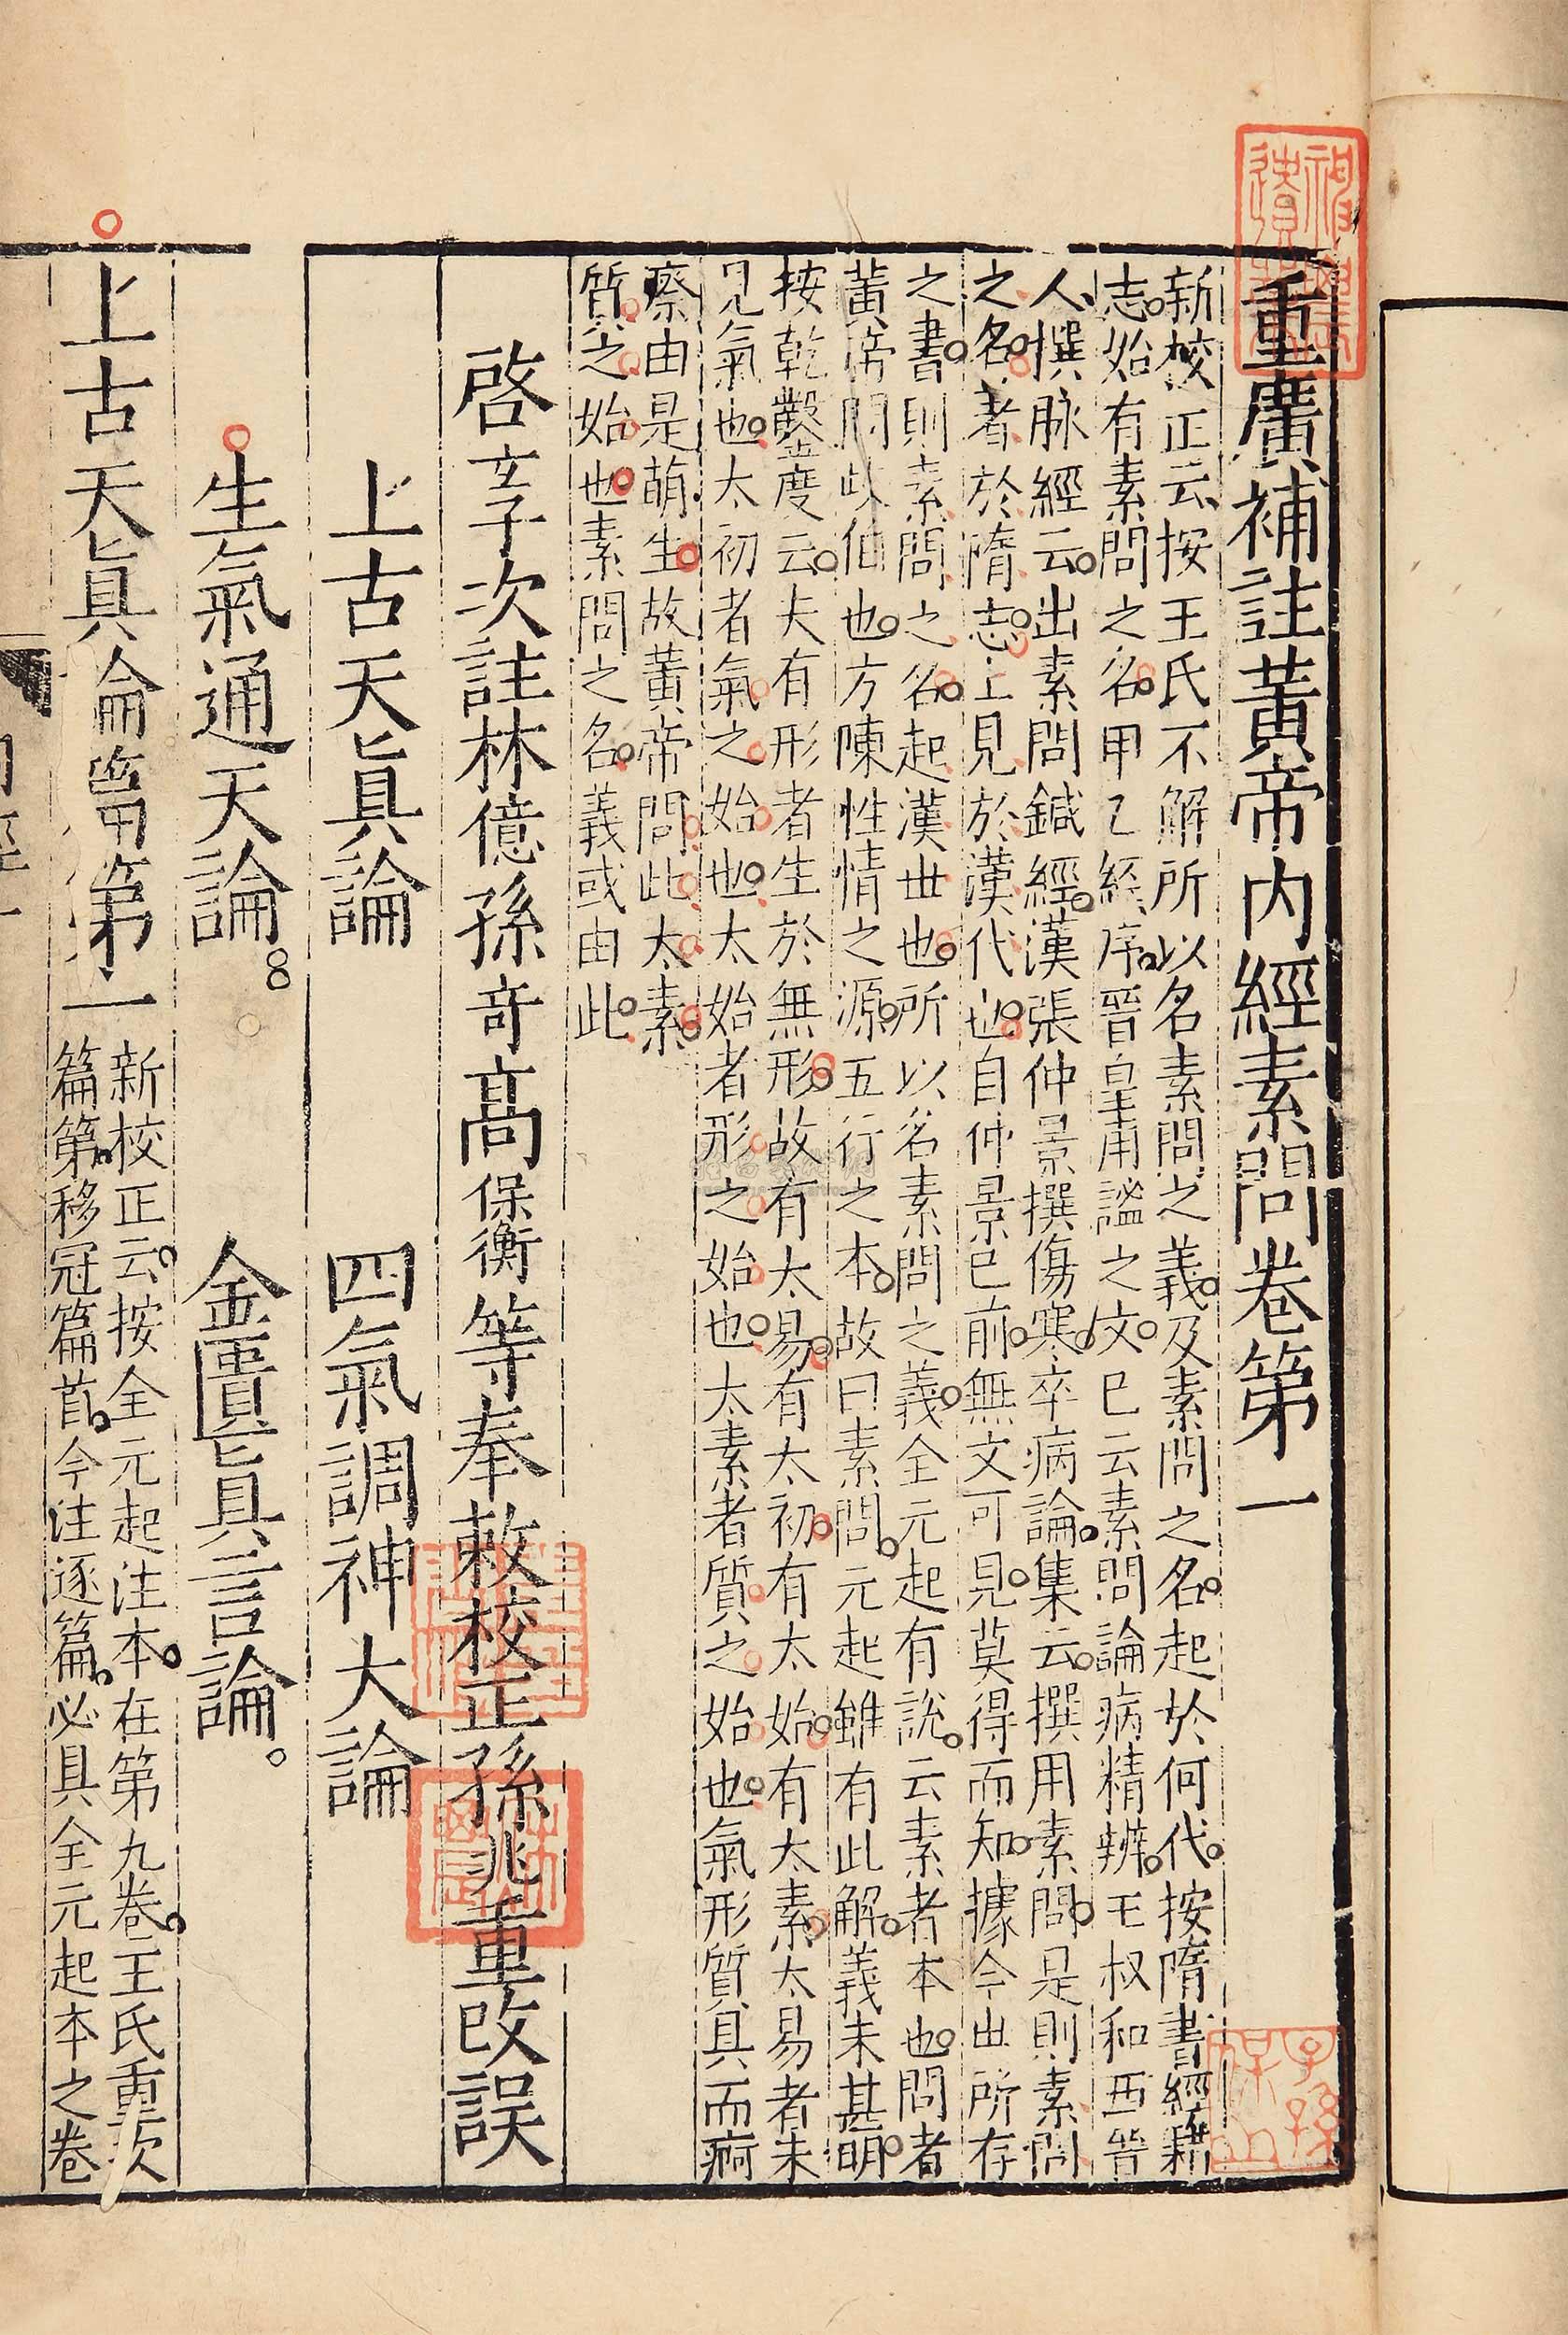 重廣補註黃帝內經素問卷第一
新校正云按王氏不解所以名素問之義及素問之名起於何代按隋書經籍
志始有素問之名甲乙經序晉皇甫謐之文已云素問論病精辨王叔和西晉
人撰脉經云出素問鍼經漢張仲景撰傷寒卒病論集云撰用素問是則素問
之名著於隋志上見於漢代也自仲景已前無文可見莫得而知據今世所存
之書則素問之名起漢世也所以名素問之義全元起有說云素者本也問者
黃帝問歧伯也方陳性情之源五行之本故曰素問元起雖有此解義未甚明
按乾鑿度云夫有形者生於無形故有太易有太初有太始有太素太易者未
見氣也太初者氣之始也太始者形之始也太素者質之始也氣形質具而痾
瘵由是萌生故黃帝問此太素
質之始也素問之名義或由此
啓玄子次註林億孫奇高保衡等奉敕校正孫兆重改誤
上古天眞論 四氣調神大論
生氣通天論 金匱眞言論
上古天眞論篇第一
新校正云按全元起注本在第九卷王氏重次
篇第移冠篇首今注逐篇必具全元起本之卷